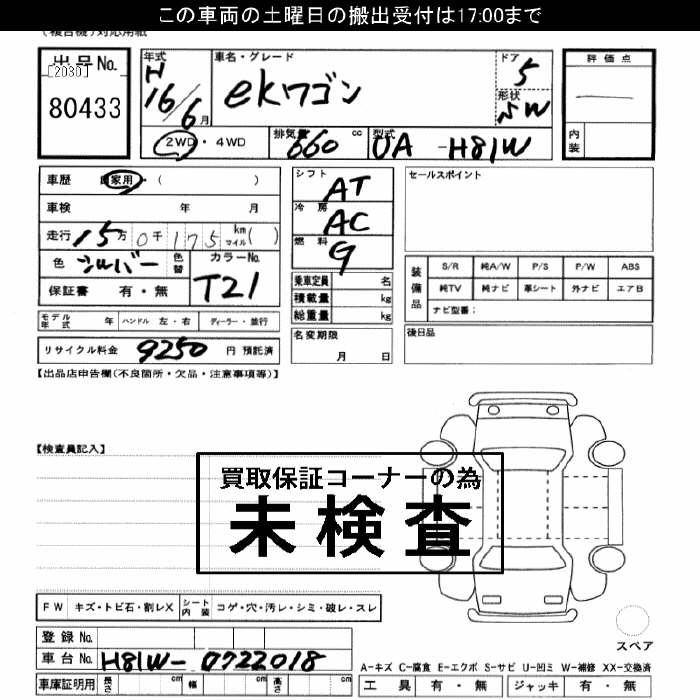 この車両の土曜日の搬出受付は17:00まで
(複合機)対応用紙
出品No.
[2030]
80433
年式
H
16/6月
車名・グレード
ekワゴン
ドア
5
形状
SW
評価点
内装
2WD・4WD
排気量
660 cc
型式
UA -H81W
車歴 自家用・( )
車検 年 月
走行 15万0千175 km マイル( )
色 シルバー 色替
カラーNo.
T21
保証書 有・無
シフト
AT
冷房
AC
燃料
G
乗車定員 名
積載量 kg
総重量 kg
セールスポイント
装備品
S/R 純A/W P/S P/W ABS
純TV 純ナビ 革シート 外ナビ エアB
ナビ型番:
モデル年式 年 ハンドル 左・右 ディーラー・並行
名変期限
月 日
後日品
リサイクル料金 9250 円 預託済
【出品店申告欄(不良箇所・欠品・注意事項等)】
【検査員記入】
買取保証コーナーの為
未検査
FW キズ・トビ石・割レX シート内装 コゲ・穴・汚レ・シミ・破レ・スレ
スペア
登録No.
車台No. H81W-0722018
車庫証明用 長さ cm 幅 cm 高さ cm
A-キズ C-腐食 E-エクボ S-サビ U-凹ミ W-補修 XX-交換済
工具 有・無 ジャッキ 有・無